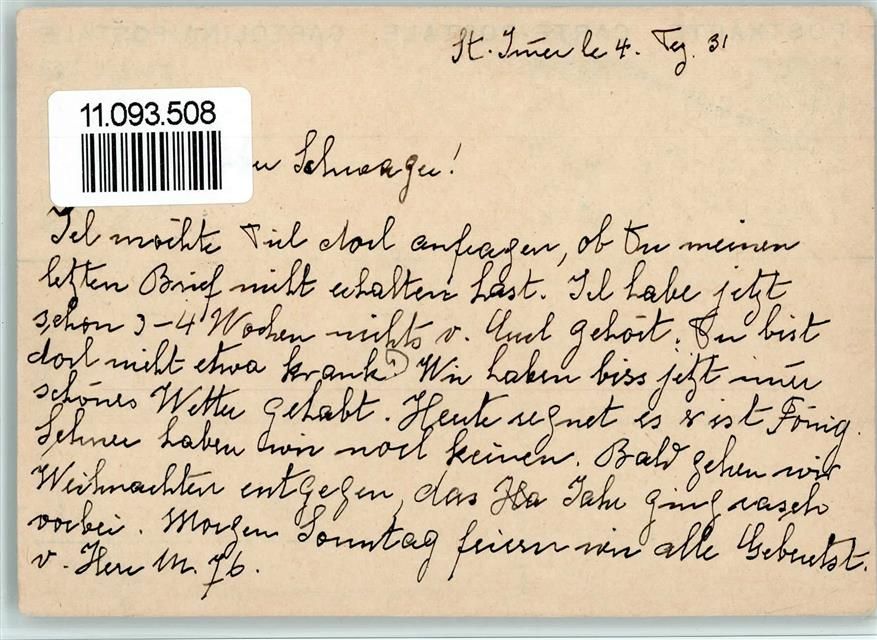 St. Imier le 4. Dez. 31
11.093.508
Schwager!
Ich möchte Dich doch anfragen, ob Du meinen
letzten Brief nicht erhalten hast. Ich habe jetzt
schon 3-4 Wochen nichts v. Euch gehört. Du bist
doch nicht etwa krank? Wir haben biss jetzt immer
schönes Wetter gehabt. Heute regnet es & ist Fönig.
Schnee haben wir noch keinen. Bald gehen wir
Weihnachten entgegen, das Jahr ging rasch
vorbei. Morgen Sonntag feiern wir alle Geburtst.
v. Herr M. 76.